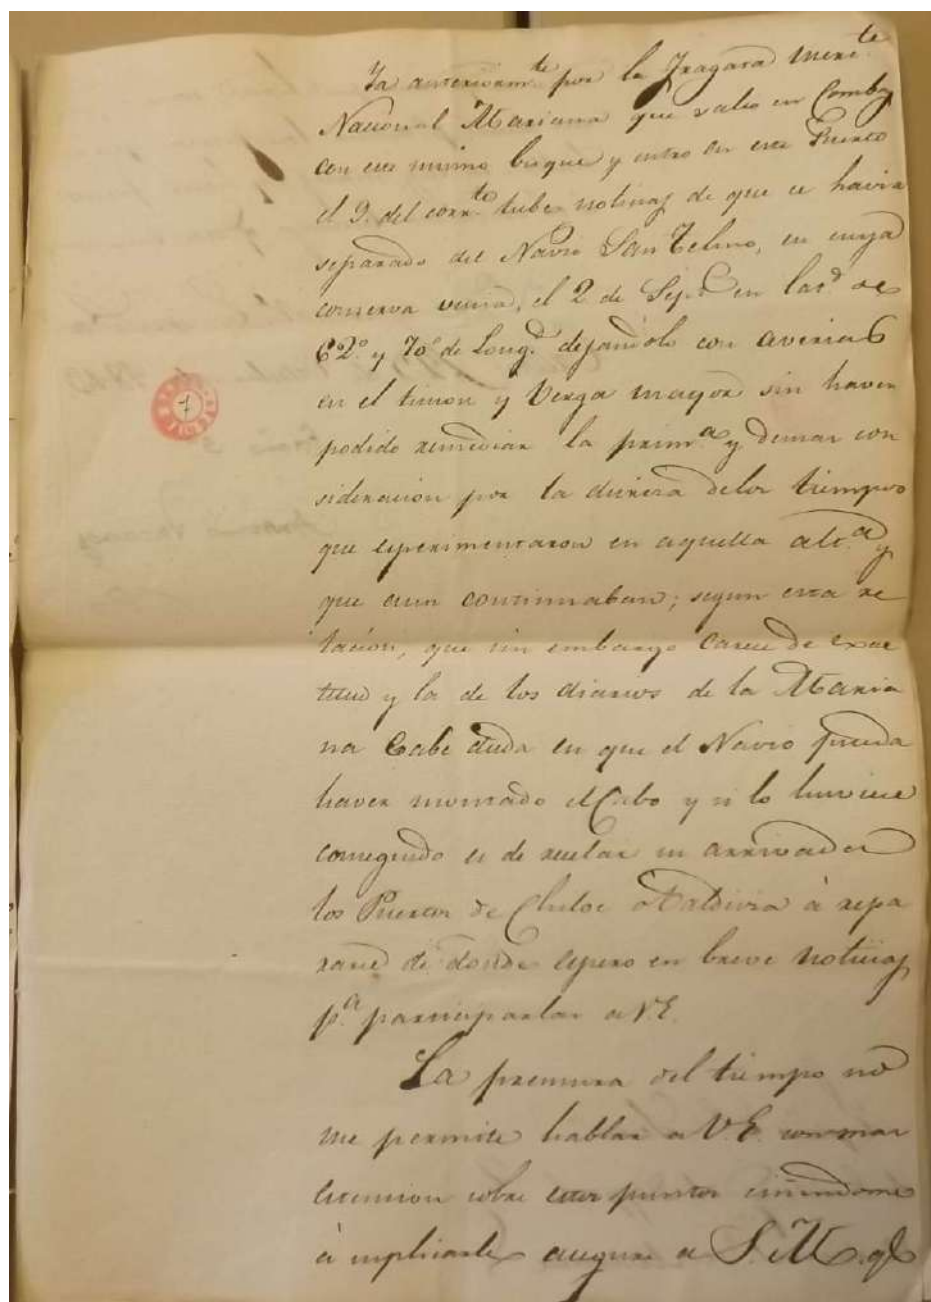 Ya anteriorm.te por la Fragata Merc.te
Nacional Mariana que salio en Comboy
con este mismo buque y entro en este Puerto
el 9. del corr.te tube noticias de que se havia
separado del Navio San Telmo, en cuya
conserva venia, el 2 de Sept.e en Lat.d de
62.º y 70º de Long.d dejandolo con averias
en el timon y Verga mayor sin haver
podido remediar la prim.a y demas con
sideracion por la dureza delos tiempos
que esperimentaron en aquella alt.a y
que aun continuaban; segun esta re
lacion, que sin embargo carece de exac
titud y la de los diarios de la Maria
na Cabe duda en que el Navio pueda
haver montado el Cabo y si lo huviese
conseguido es de recelar su arrivada a
los Puertos de Chiloe o Valdivia à repa
rarse de donde espero en breve noticias
p.a participarlas a V.E.
La premura del tiempo no
me permite hablar a V.E. con mas
estension sobre estos puntos ciñendome
à suplicarle asegure a S.M. q.e